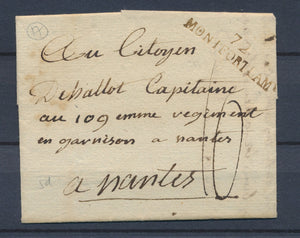 72
MONTFORTLAM
Au Citoyen
Deballot Capitaine
au 109 emme regiment
en garnison a nantes
a nantes